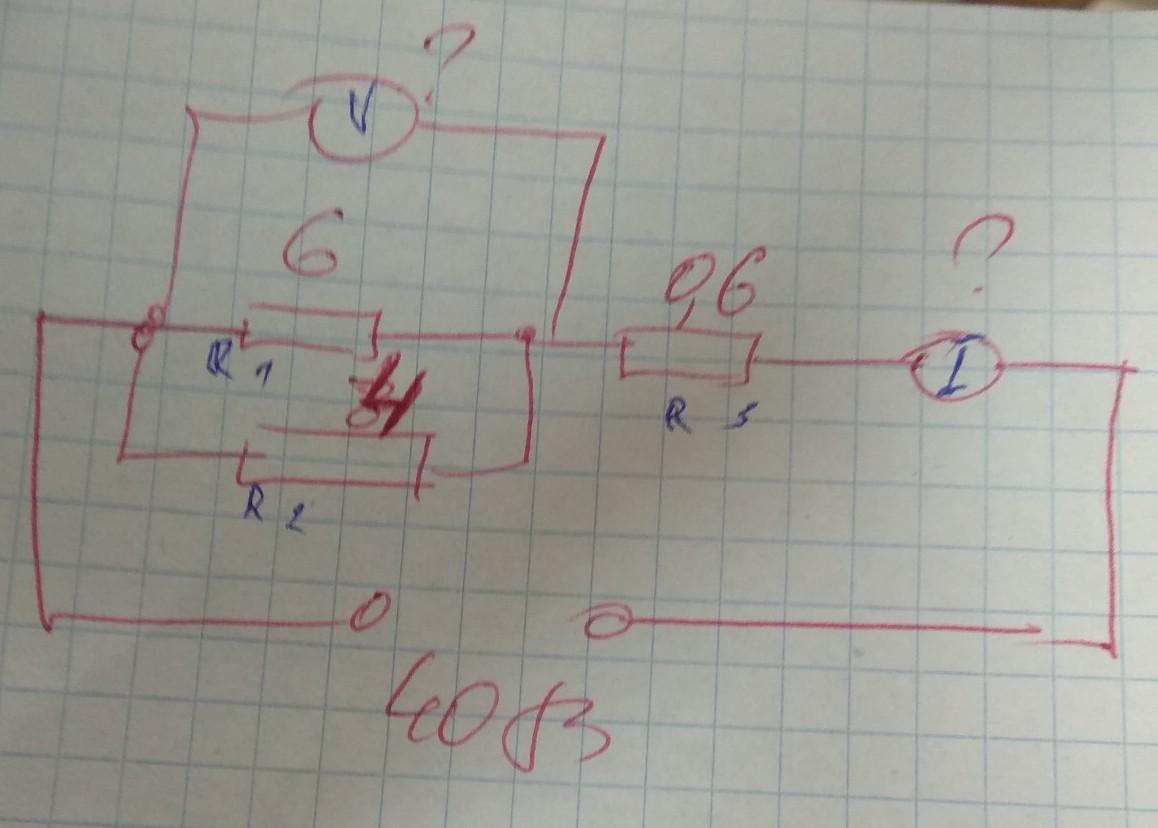 ?
V
6
?
0,6
R 1
4
I
R 3
R 2
40 В